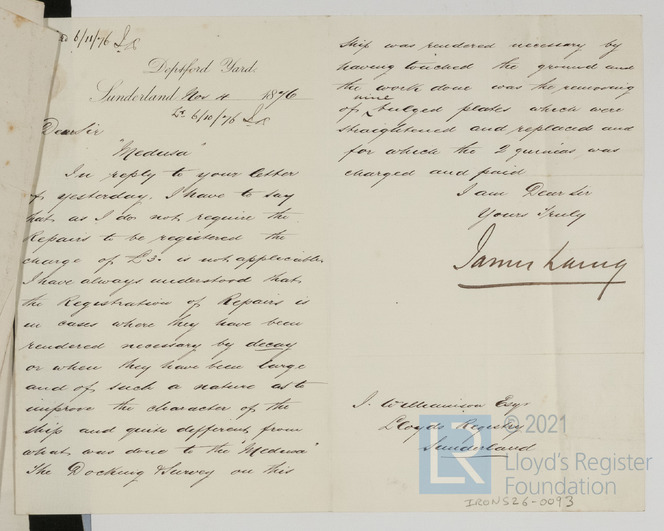 6/11/76 J.L.
Deptford Yard.
Sunderland Nov 4 1876
Lr 6/10/76 J.L.
Dear Sir
"Medusa"
In reply to your letter
of yesterday. I have to say
that as I do not require the
Repairs to be registered the
charge of £3. is not applicable
I have always understood that
the Registration of Repairs is
in cases where they have been
rendered necessary by decay
or when they have been large
and of such a nature as to
improve the character of the
ship and quite different from
what was done to the "Medusa"
The Docking & Survey on this
ship was rendered necessary by
having touched the ground and
the work done was the removing
nine
of bulged plates which were
straightened and replaced and
for which the 2 guineas was
charged and paid
I am Dear Sir
Yours Truly
James Laing
J. Williamson Esqr
Lloyds Registry
Sunderland
© 2021
LR
Lloyd's Register
Foundation
IRONS26-0093